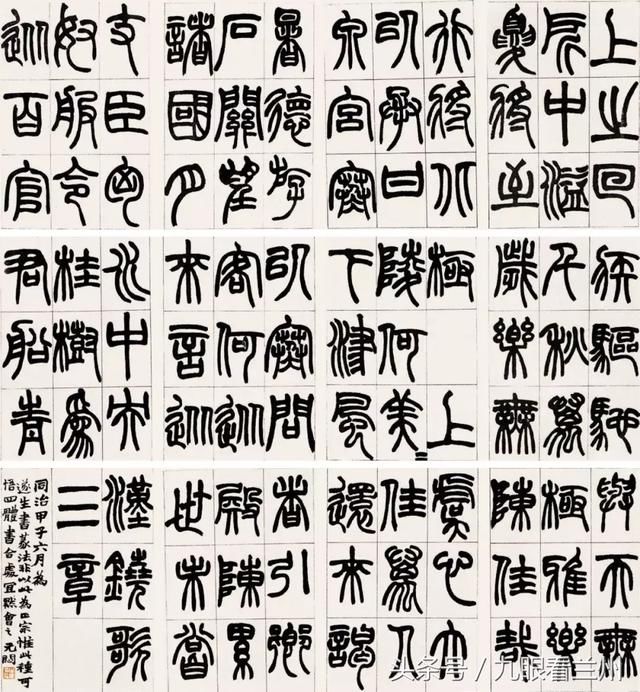 上之回
所中溢
夏將至
行將北
以承甘
泉宮寒
暑德游
石關望
諸國月
支臣匈
奴服令
從百官
疾驅馳
千秋萬
歲樂無
極上
陵何美=
下津風
以寒問
客何從
來言從
水中央
桂樹為
君船青
與天無
極雅樂
陳佳哉
虞心大
佳萬人
還來謁
者引鄉
殿陳累
世未嘗
漢鐃歌
三章
同治甲子六月為
遂生書篆法非以此為正宗惟此種可
悟四體書合處宜默會之 无悶
头条号 / 九眼看兰州